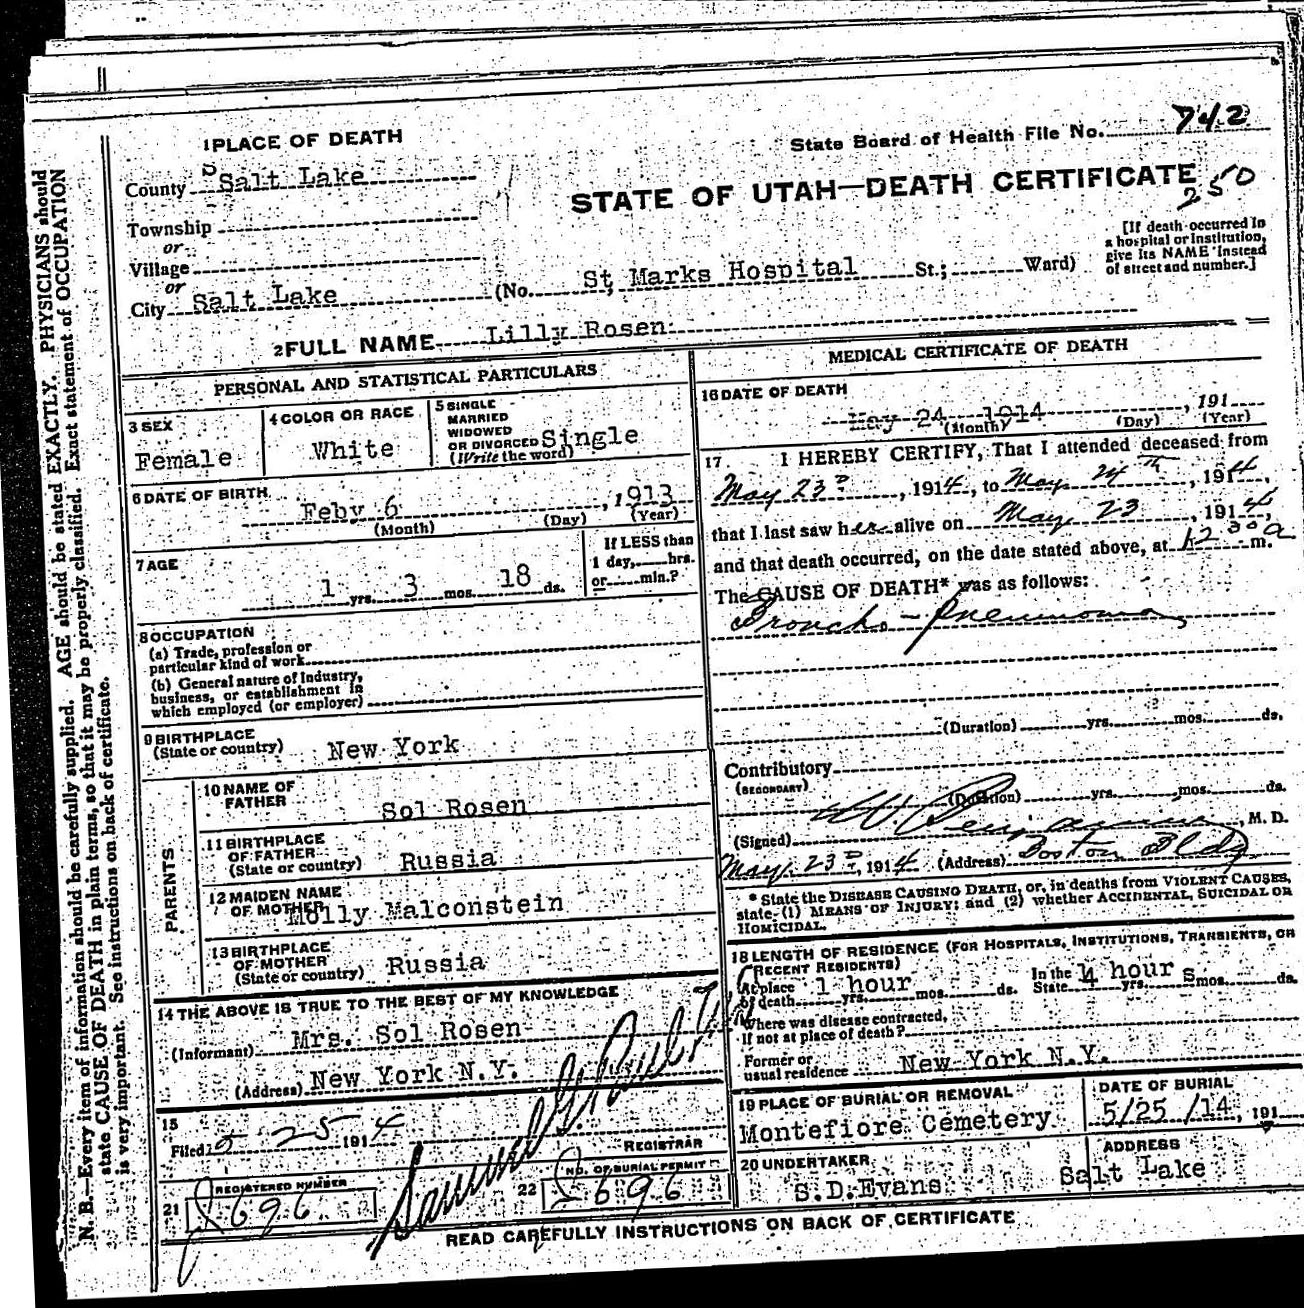 1 PLACE OF DEATH
State Board of Health File No. 742
County Salt Lake
STATE OF UTAH—DEATH CERTIFICATE
250
Township
or
Village
or
City Salt Lake (No. St Marks Hospital St.; Ward)
[If death occurred in
a hospital or institution,
give its NAME instead
of street and number.]
2 FULL NAME Lilly Rosen
PERSONAL AND STATISTICAL PARTICULARS
3 SEX
Female
4 COLOR OR RACE
White
5 SINGLE
MARRIED
WIDOWED
OR DIVORCED Single
(Write the word)
6 DATE OF BIRTH
Feby 6, 1913
(Month) (Day) (Year)
7 AGE
1 yrs. 3 mos. 18 ds.
If LESS than
1 day, hrs.
or min.?
8 OCCUPATION
(a) Trade, profession or
particular kind of work
(b) General nature of Industry,
business, or establishment in
which employed (or employer)
9 BIRTHPLACE
(State or country) New York
PARENTS
10 NAME OF
FATHER
Sol Rosen
11 BIRTHPLACE
OF FATHER
(State or country) Russia
12 MAIDEN NAME
OF MOTHER
Molly Malconstein
13 BIRTHPLACE
OF MOTHER
(State or country) Russia
14 THE ABOVE IS TRUE TO THE BEST OF MY KNOWLEDGE
(Informant) Mrs. Sol Rosen
(Address) New York N.Y.
15
Filed 5 25 1914
Samuel G. Paul
REGISTRAR
21 REGISTERED NUMBER
696
22 NO. OF BURIAL PERMIT
696
MEDICAL CERTIFICATE OF DEATH
16 DATE OF DEATH
May 24 1914, 191
(Month) (Day) (Year)
17 I HEREBY CERTIFY, That I attended deceased from
May 23d, 1914, to May 24th, 1914,
that I last saw her alive on May 23, 1914,
and that death occurred, on the date stated above, at 12 30 a m.
The CAUSE OF DEATH* was as follows:
Broncho-pneumonia
(Duration) yrs. mos. ds.
Contributory
(SECONDARY)
(Duration) yrs. mos. ds.
(Signed) M. D.
May 23d, 1914 (Address) Boston Bldg
* State the DISEASE CAUSING DEATH, or, in deaths from VIOLENT CAUSES,
state (1) MEANS OF INJURY; and (2) whether ACCIDENTAL, SUICIDAL OR
HOMICIDAL.
18 LENGTH OF RESIDENCE (FOR HOSPITALS, INSTITUTIONS, TRANSIENTS, OR
RECENT RESIDENTS)
At place
of death 1 hour yrs. mos. ds. In the
State 4 hours yrs. mos. ds.
Where was disease contracted,
If not at place of death?
Former or
usual residence New York N.Y.
19 PLACE OF BURIAL OR REMOVAL
Montefiore Cemetery
DATE OF BURIAL
5/25 /14, 191
20 UNDERTAKER
S.D. Evans
ADDRESS
Salt Lake
READ CAREFULLY INSTRUCTIONS ON BACK OF CERTIFICATE
N. B.—Every item of information should be carefully supplied. AGE should be stated EXACTLY. PHYSICIANS should
state CAUSE OF DEATH in plain terms, so that it may be properly classified. Exact statement of OCCUPATION
is very important. See instructions on back of certificate.